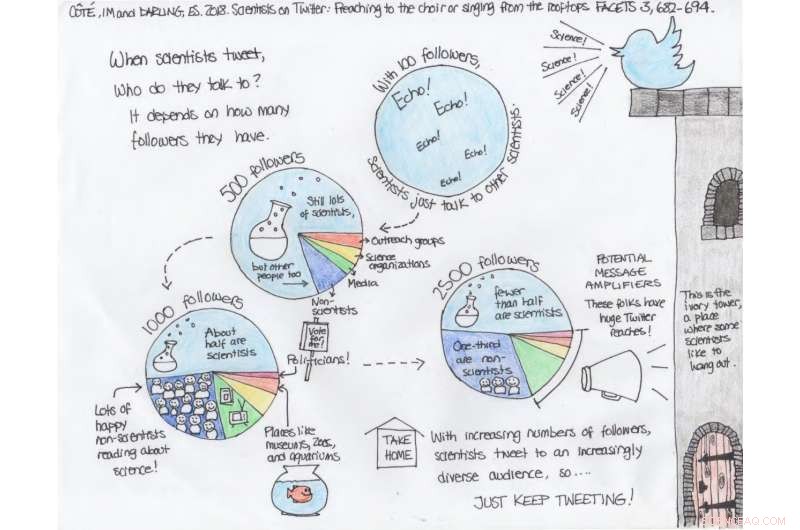 CÔTÉ, IM and DARLING, ES. 2018. Scientists on Twitter: Preaching to the choir or singing from the rooftops. FACETS 3, 682-694.
When scientists tweet,
who do they talk to?
It depends on how many
followers they have.
With 100 followers,
Echo!
Echo!
Echo!
Echo!
Echo!
Scientists just talk to other scientists.
Science!
Science!
Science!
Science!
500 followers
Still lots
of scientists,
but other
people too
Outreach groups
Science
organizations
Media
Non-
scientists
1000 followers
About
half are
scientists
Vote
for
me!
Politicians!
Lots of
happy
non-scientists
reading about
science!
Places like
museums, zoos,
and aquariums
2500 followers
fewer
than half
are scientists
One-third
are non-
scientists
POTENTIAL
MESSAGE
AMPLIFIERS
These folks have
huge Twitter
reaches!
This is the
ivory tower,
a place
where some
scientists
like to
hang out.
TAKE
HOME
With increasing numbers of followers,
scientists tweet to an increasingly
diverse audience, so....
JUST KEEP TWEETING!